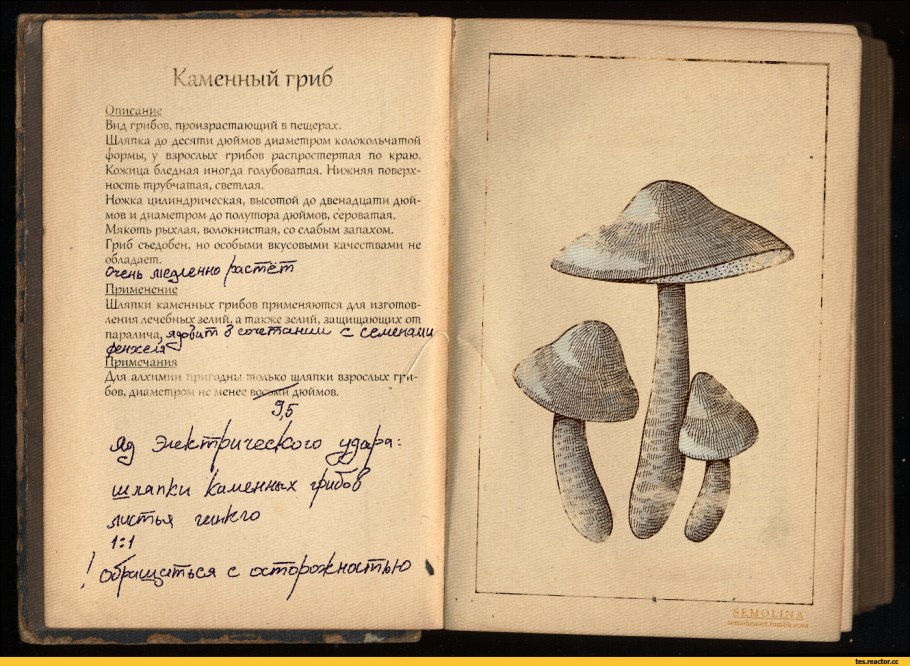 Каменный гриб
Описание
Вид грибов, произрастающий в пещерах.
Шляпка до десяти дюймов диаметром колокольчатой
формы, у взрослых грибов распростертая по краю.
Кожица бледная иногда голубоватая. Нижняя поверх-
ность трубчатая, светлая.
Ножка цилиндрическая, высотой до двенадцати дюй-
мов и диаметром до полутора дюймов, сероватая.
Мякоть рыхлая, волокнистая, со слабым запахом.
Гриб съедобен, но особыми вкусовыми качествами не
обладает.
Очень медленно растёт
Применение
Шляпки каменных грибов применяются для изготов-
ления лечебных зелий, а также зелий, защищающих от
паралича, ядовит в сочетании с семенами
фенхеля
Примечания
Для алхимии пригодны только шляпки взрослых гри-
бов, диаметром не менее восьми дюймов.
9,5
Яд Электрического удара:
шляпки каменных грибов
листья гинкго
1:1
! обращаться с осторожностью
SEMOLINA
semolinaart.tumblr.com
tes.reactor.cc